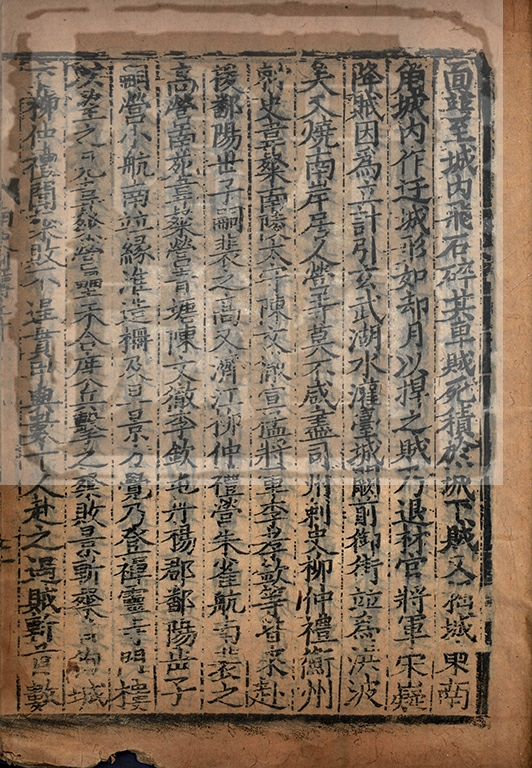 面竝至城內飛石碎其車賊死積於城下賊又掘城東南
角城內作迂城形如却月以捍之賊乃退材官將軍宋嶷
降賊因為立計引玄武湖水灌臺城闕前御街竝為洪波
矣又燒南岸居人營寺莫不咸盡司州刺史柳仲禮衡州
刺史韋粲南陵太守陳文徹宣猛將軍李孝欽等皆來赴
援鄱陽世子嗣裴之高又濟江柳仲禮營朱雀航南裴之
高營南苑韋粲營青塘陳文徹李欽屯丹楊郡鄱陽世子
嗣營小航南竝緣淮造柵及旦景方覺乃登禪靈寺門樓
望之見韋粲營壘未合度兵擊之粲敗景斬粲首徇城
下柳仲禮聞粲敗不遑貫甲與數十人赴之遇賊斬首數